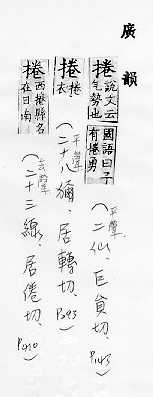 廣韻
捲 說文云气勢也 國語曰子有捲勇
(平聲 二仙、巨員切、P.143)
捲 捲衣
(二十八獮、居轉切、P.293)
捲 西捲縣名在日南
(去聲 二十三線、居倦切、P.410)